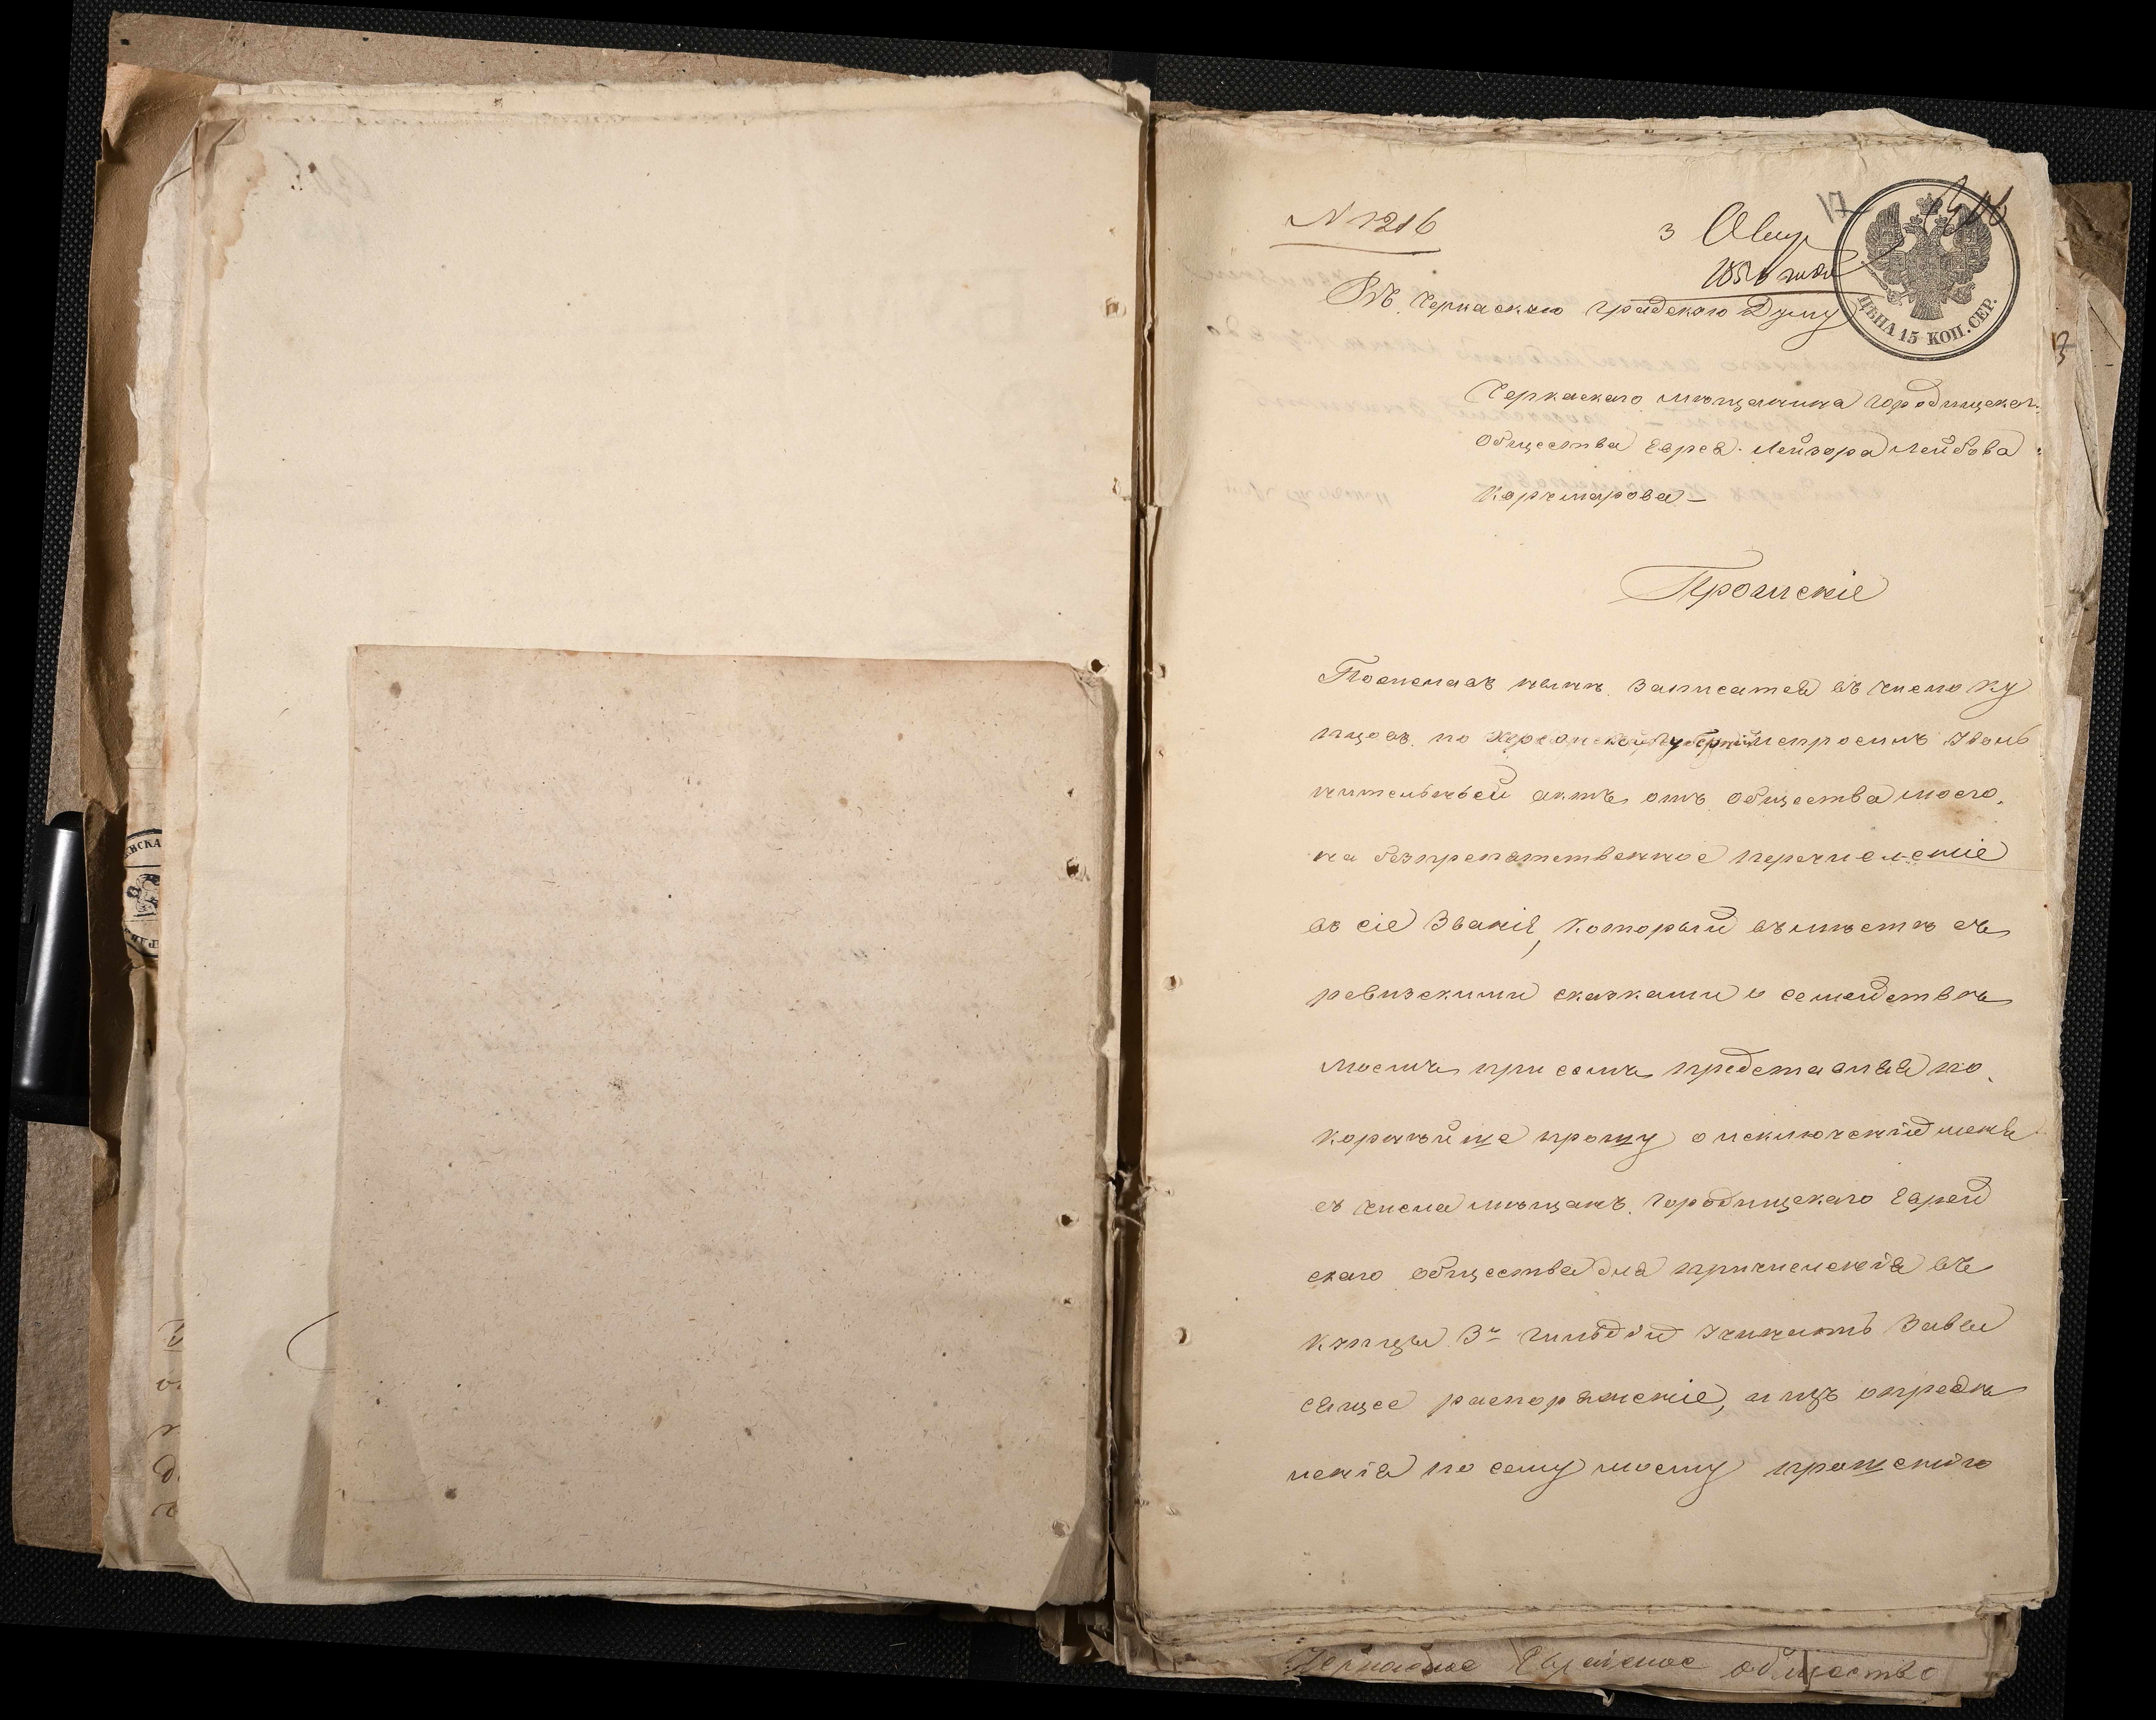 N 1216
3 Апр
1856 года
17
ЦѢНА 15 КОП. СЕР.
Въ Черкаскую градскую Думу
Черкаскаго мѣщанина Городищеског.
Общества Еврея Лейзора Лейбова
Корчмарова –
Прошеніе
Пожелавъ нынѣ записатся въ число ку
пцовъ по Херсонской Губерніи испросилъ Уволь
нительный актъ отъ общества моего
на безпрепятственное перечисленіе
въ сіе Званія, который въмѣстѣ съ
ревизскими сказками о семействѣ
моемъ при семъ представляя по
корнѣйше прошу о исключеніи меня
съ числа мѣщанъ Городищскаго Еврей
скаго общества для причисленія въ
купцы 3й гильдіи учинить Зави
сящее распоряженіе, и
опредѣ
ленія по сему моему прошенію
Черкаское Еврейское общество